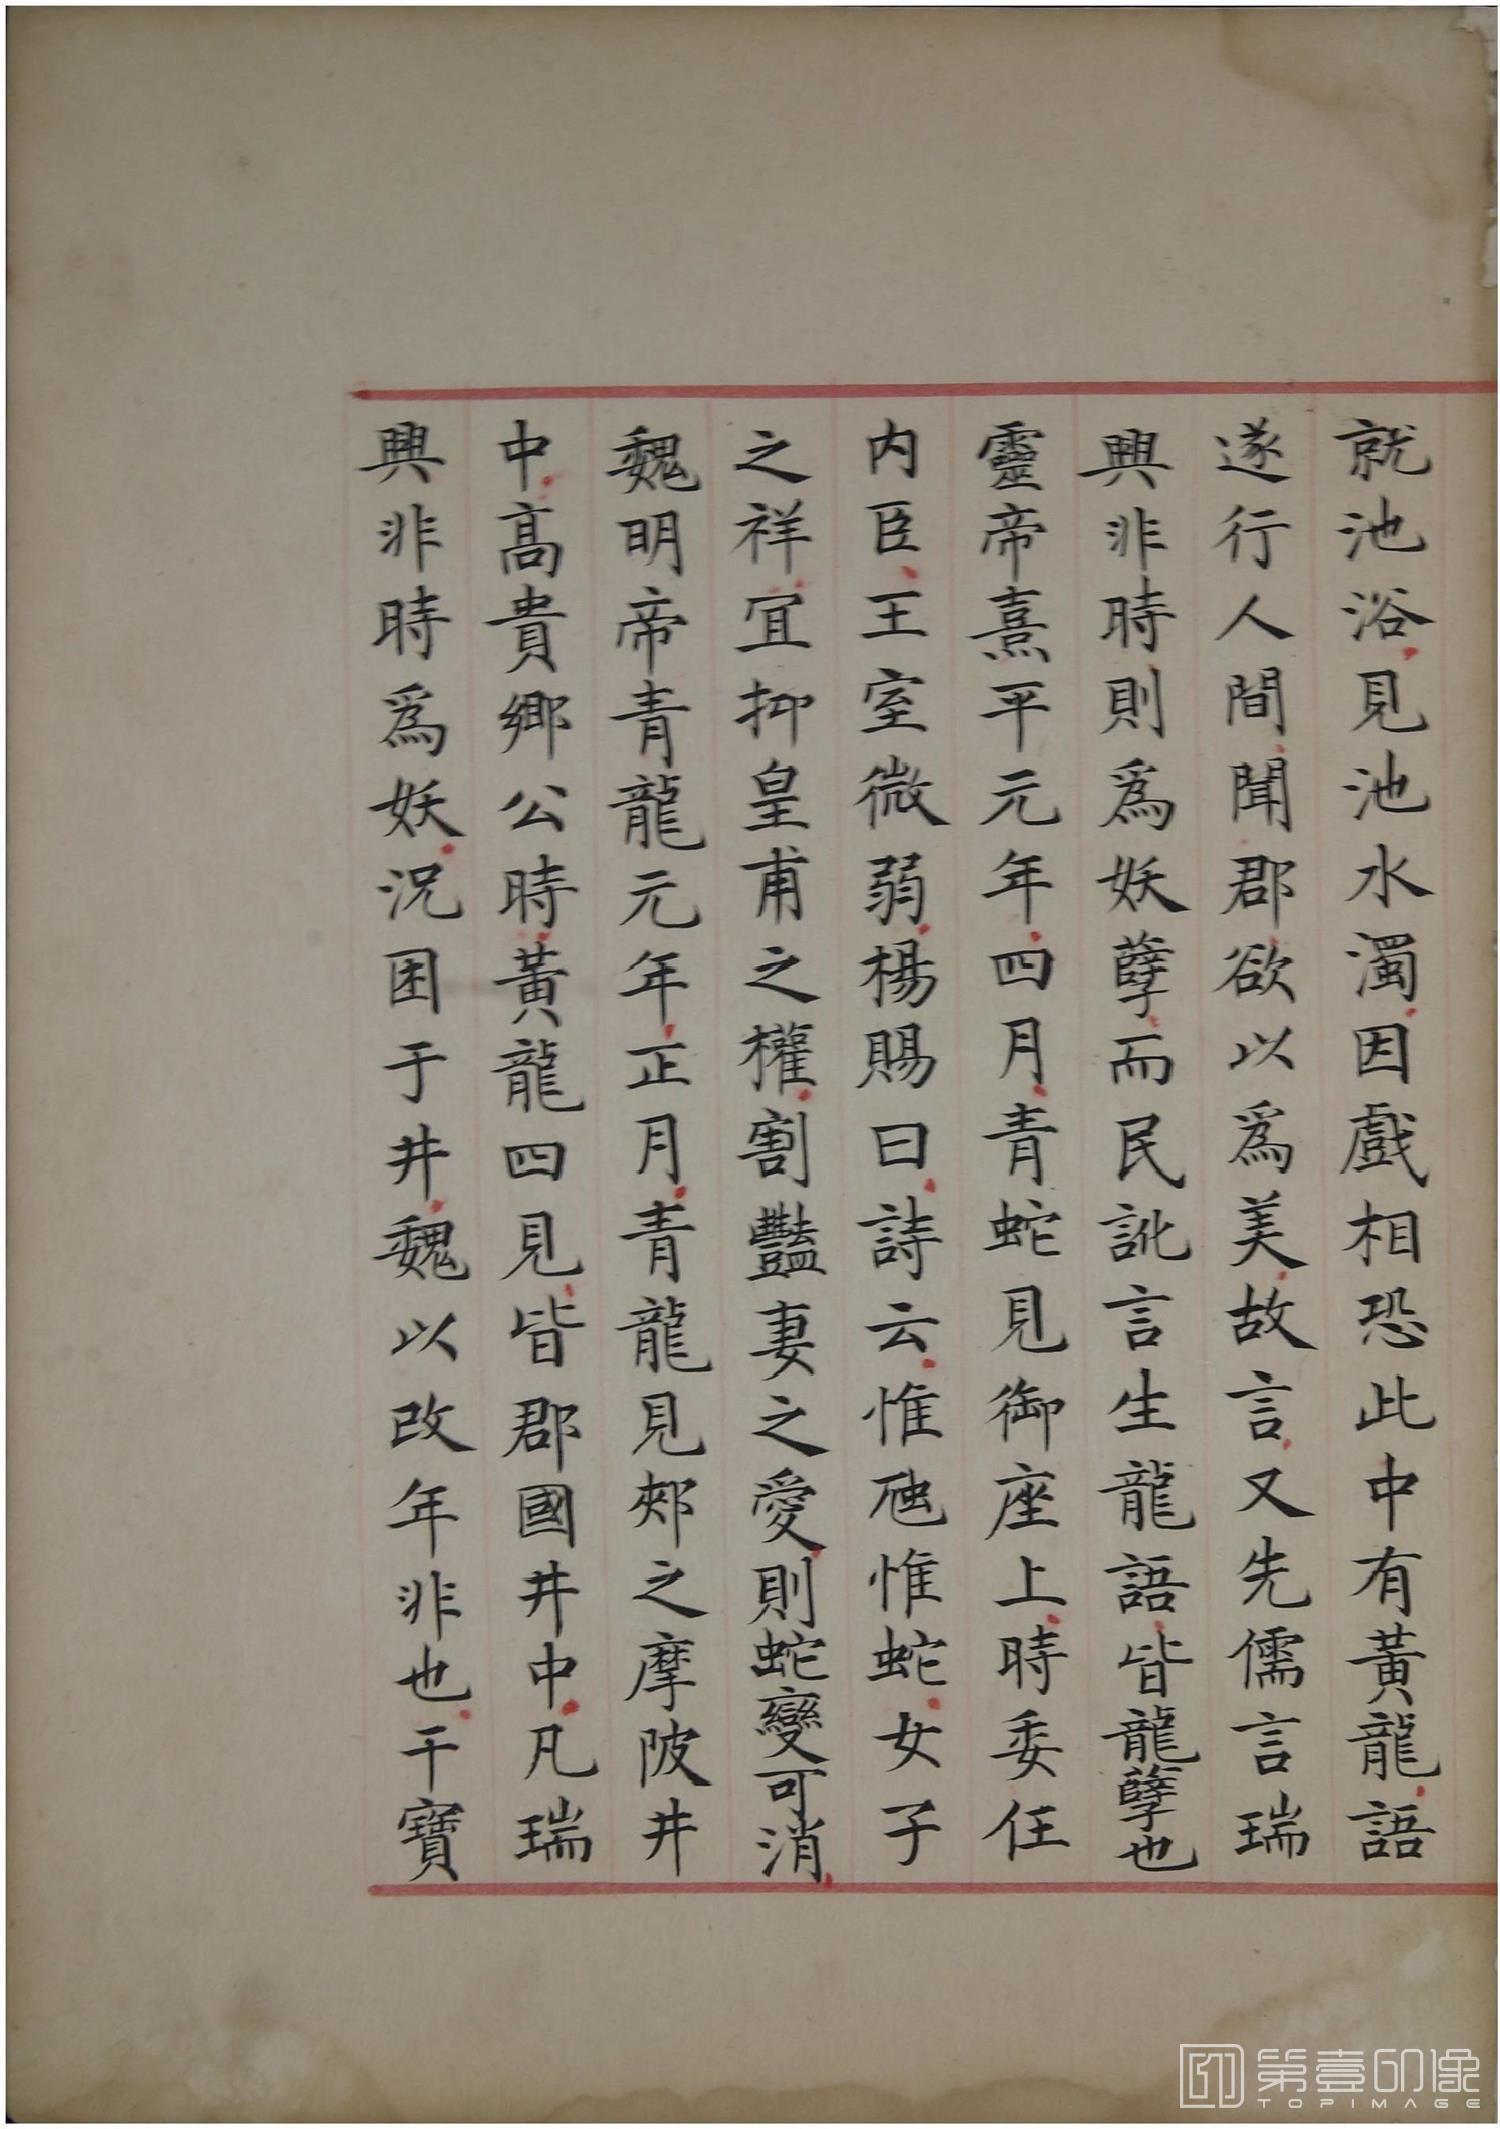 就池浴見池水濁因戲相恐此中有黃龍語
遂行人間聞郡欲以爲美故言又先儒言瑞
興非時則爲妖孽而民訛言生龍語皆龍孽也
靈帝熹平元年四月青蛇見御座上時委任
内臣王室微弱楊賜曰詩云惟虺惟蛇女子
之祥宜抑皇甫之權割豔妻之愛則蛇變可消
魏明帝青龍元年正月青龍見郟之摩陂井
中高貴鄉公時黃龍四見皆郡國井中凡瑞
興非時爲妖況困于井魏以改年非也干寶
第壹印像
TOPIMAGE